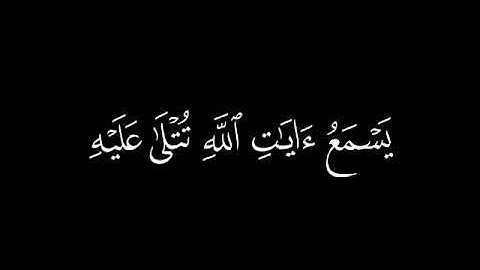 يَسْمَعُ ءَايَـٰتِ ٱللَّهِ تُتْلَىٰ عَلَيْهِ